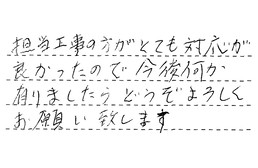 担当工事の方がとても対応が
良かったので今後何か
有りましたらどうぞよろしく
お願い致します